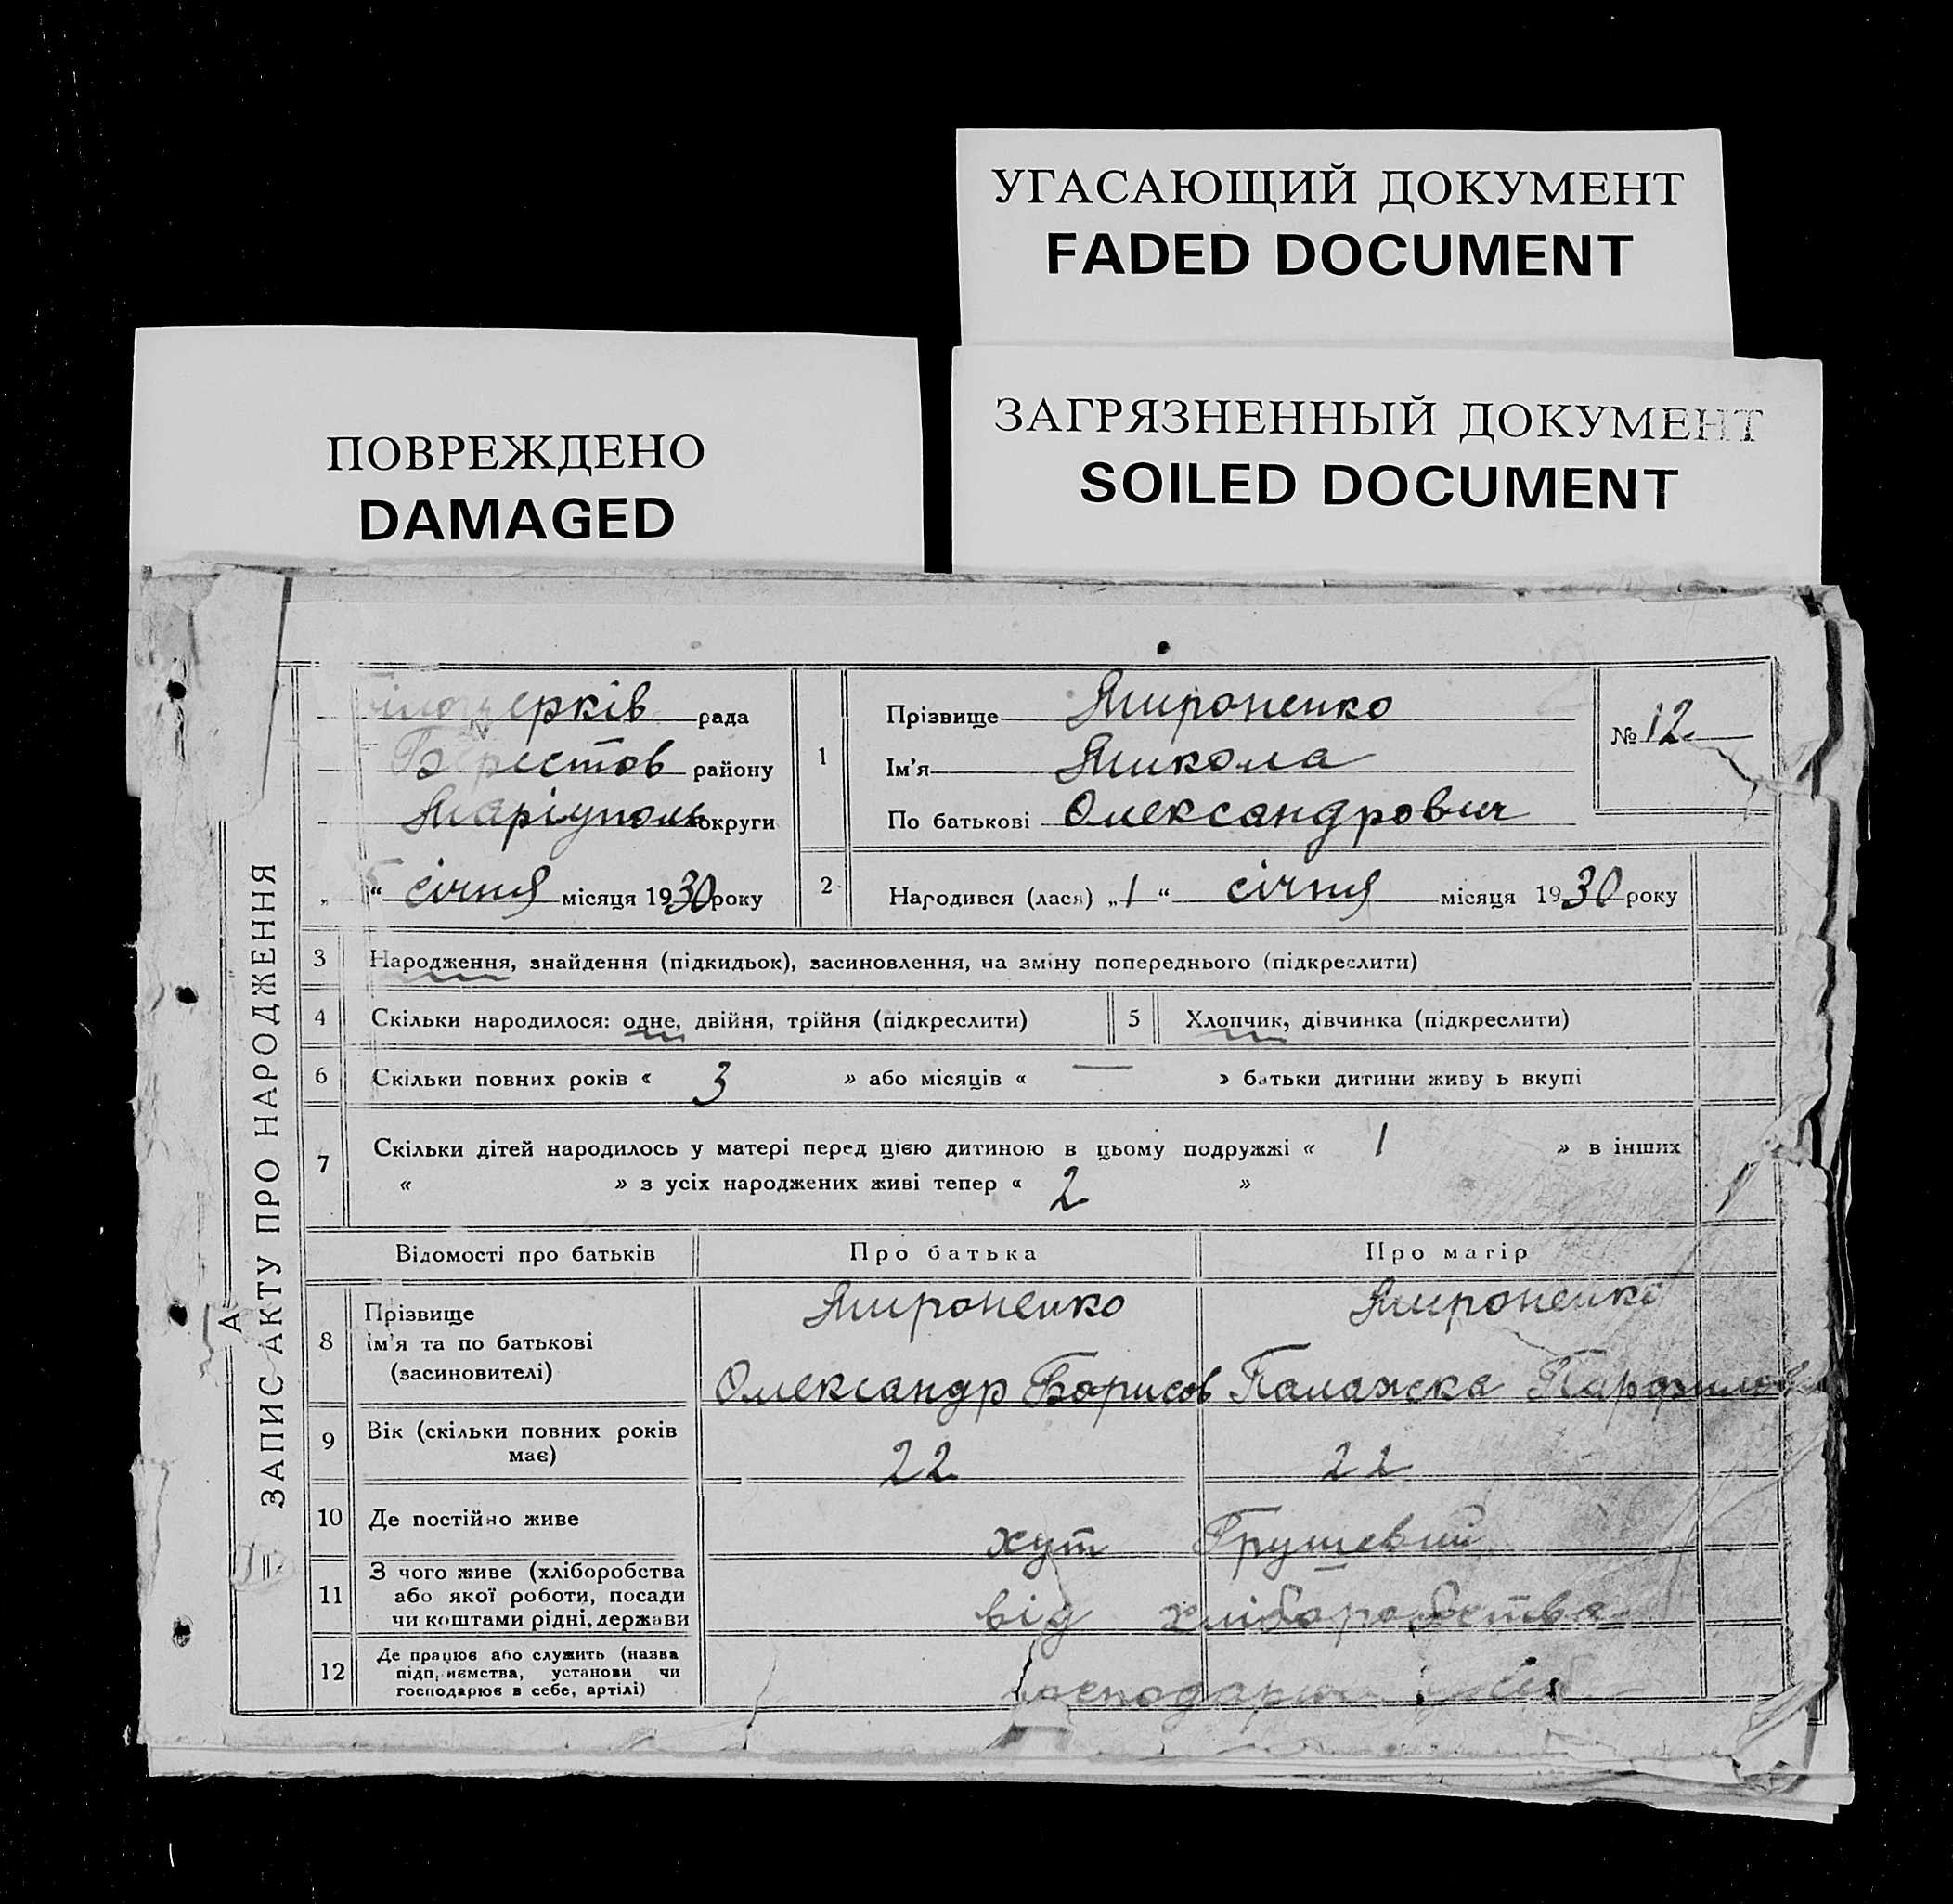 УГАСАЮЩИЙ ДОКУМЕНТ
FADED DOCUMENT
ПОВРЕЖДЕНО
DAMAGED
ЗАГРЯЗНЕННЫЙ ДОКУМЕНТ
SOILED DOCUMENT
А
ЗАПИС АКТУ ПРО НАРОДЖЕННЯ
рада
района
Маріуполь округи
" " січня місяця 1930 року
1
Прізвище Мироненко
Ім'я Микола
По батькові Олександрович
№ 12
2
Народився (лася) „1“ січня місяця 1930 року
3 Народження, знайдення (підкидьок), засиновлення, на зміну попереднього (підкреслити)
4 Скільки народилося: одне, двійня, трійня (підкреслити)
5 Хлопчик, дівчинка (підкреслити)
6 Скільки повних років « 3 » або місяців « — » батьки дитини живу ь вкупі
7 Скільки дітей народилось у матері перед цією дитиною в цьому подружжі « 1 » в інших
« » з усіх народжених живі тепер « 2 »
Відомості про батьків Про батька Про матір
8 Прізвище ім'я та по батькові (засиновителі)
Мироненко Мироненко
Олександр Борисов Палажка
9 Вік (скільки повних років має) 22 22
10 Де постійно живе хут Грушевий
11 З чого живе (хліборобства або якої роботи, посади чи коштами рідні, держави
від хліборобства
12 Де працює або служить (назва підп,иємства, установи чи господарює в себе, артілі)